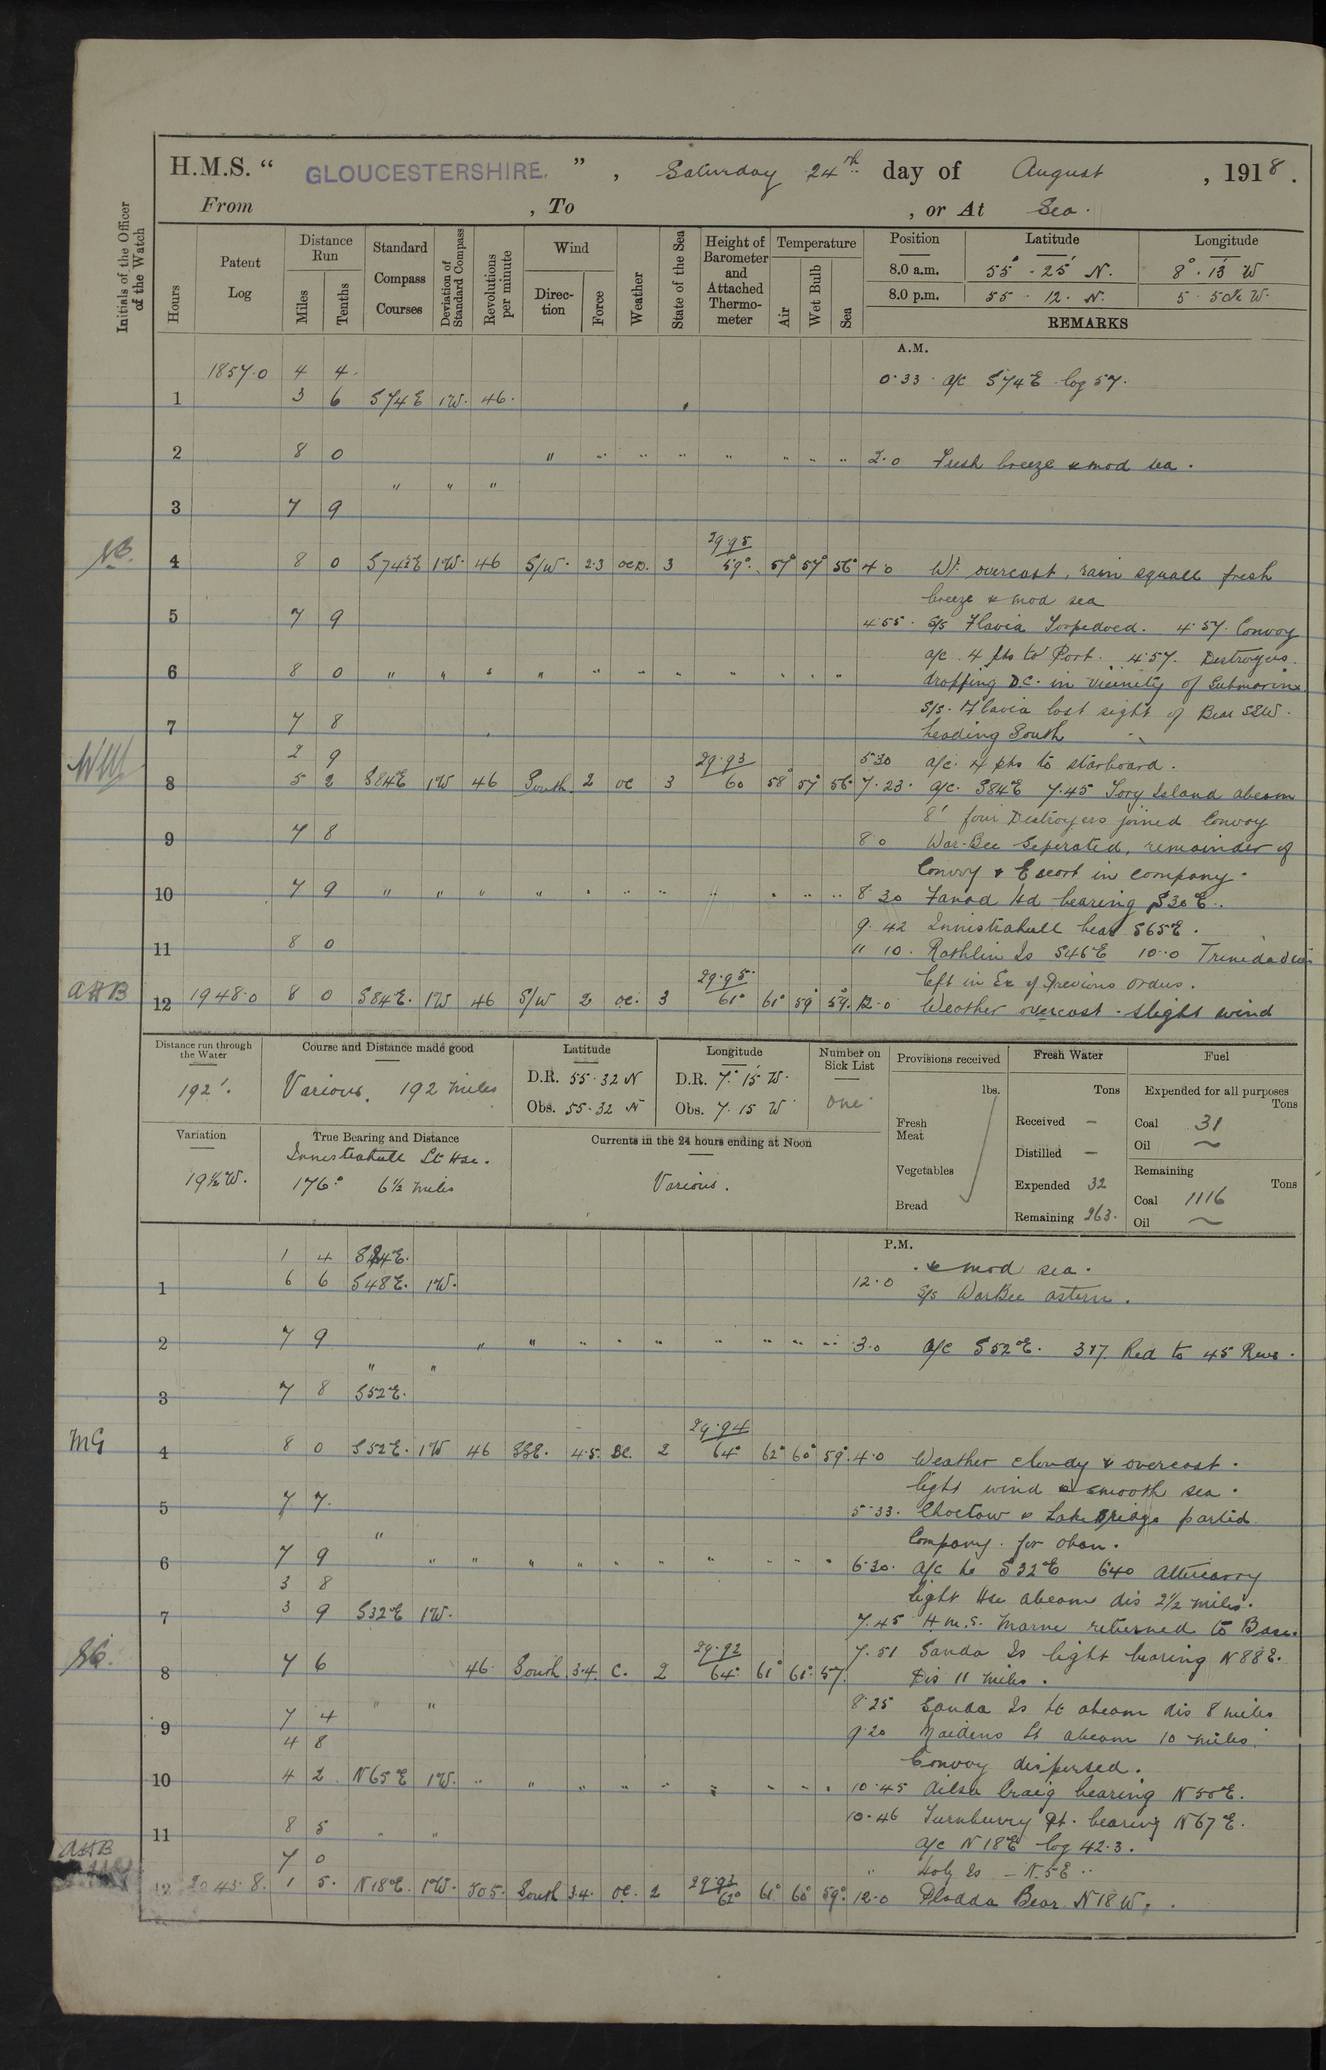 H.M.S. “ GLOUCESTERSHIRE. ” , Saturday 24th day of August , 1918.
From , To , or At Sea.
Initials of the Officer of the Watch
Hours
Patent Log
Distance Run
Miles
Tenths
Standard Compass Courses
Deviation of Standard Compass
Revolutions per minute
Wind
Direction
Force
Weather
State of the Sea
Height of Barometer and Attached Thermometer
Temperature
Air
Wet Bulb
Sea
Position Latitude Longitude
8.0 a.m. 55° · 25' N. 8° · 13' W
8.0 p.m. 55 · 12 · N. 5 · W.
REMARKS
A.M.
1857·0 4 4.
0·33 · a/c S74E log 57.
1 3 6 S74E 1W. 46.
2 8 0 " " " " " " " " 2·0 Fresh breeze & mod sea.
" " "
3 7 9
29·95
4 8 0 S74E 1W. 46 S/W. 2·3 3 59°. 57° 57° 56° 4·0 Wr. overcast, rain squall fresh
breeze & mod sea
5 7 9 4·55 · S/S Flavia Torpedoed. 4·57. Convoy
a/c 4 pts to Port. 4·57. Destroyers.
6 8 0 " " " " " " " " " " " dropping D.C. in vicinity of Submarine
S/S. Flavia lost sight of Bear SSW.
7 7 8 heading South
2 9 29·93 5·30 a/c. 4 pts to starboard.
8 5 2 S84E 1W 46 South 2 oc 3 60 58° 57° 56° 7·23 · a/c. S84E 7·45 Tory Island abeam
8' four Destroyers joined Convoy
9 7 8 8·0 War-Bee Seperated, remainder of
Convoy & Escort in company.
10 7 9 " " " " " " " " " " " 8·30 Fanad Hd bearing S30E.
9·42 Innistrahull bear S65E.
11 8 0 11·10. Rathlin Is S46E 10·0
29·95 left in Ex of Previous orders.
AHB 12 1948·0 8 0 S84E. 1W 46 S/W 2 oc. 3 61° 61° 59° 59. 12·0 Weather overcast. slight wind
Distance run through the Water
192'.
Course and Distance made good
Various. 192 miles
Latitude
D.R. 55·32 N
Obs. 55·32 N
Longitude
D.R. 7°·15' W.
Obs. 7·15 W
Number on Sick List
one
Provisions received
lbs.
Fresh Meat
Vegetables
Bread
Fresh Water
Tons
Received –
Distilled –
Expended 32
Remaining 263.
Fuel
Expended for all purposes
Tons
Coal 31
Oil ~
Remaining
Tons
Coal 1116
Oil ~
Variation
19½W.
True Bearing and Distance
Innistrahull Lt Hse.
176° 6½ miles
Currents in the 24 hours ending at Noon
Various.
P.M.
1 4 S84E.
& mod sea.
1 6 6 S48E. 1W. 12·0 S/S WarBee astern.
2 7 9 " " " " " " " " " 3·0 a/c S52E. 317 Red to 45 Revs.
" "
3 7 8 S52E.
29·94
MG 4 8 0 S52E. 1W 46 SSE. 4·5. BC. 2 64° 62° 60° 59° 4·0 Weather cloudy & overcast.
light wind & smooth sea.
5 7 7. 5·33. Choctaw & Lake Bridge parted
" Company. for oban.
6 7 9 " " " " " " " " " " 6·30. a/c to S32E 6·40 Altacarry
3 8 light Hse abeam dis 2½ miles.
7 3 9 S32E 1W. 7·45 H.M.S. Marne returned to Base.
29·92 7·51 Sanda Is light bearing N88E.
8 7 6 46 South 3·4. C. 2 64° 61° 61° 57. Dis 11 miles.
" " 8·25 Sanda Is Lt abeam dis 8 miles
9 7 4 9·20 Maidens Lt abeam 10 miles.
4 8 Convoy dispersed.
10 4 2 N65E 1W. " " " " " " " " " 10·45 Ailsa Craig bearing N50E.
10·46 Turnberry Pt. bearing N67E.
11 8 5 " " a/c N18E log 42·3.
AHB 7 0 " Holy Is – N5E
29·93
12 2045·8. 1 5. N18E. 1W. 50·5. South 3·4. oc. 2 62° 61° 60° 59°. 12·0 Pladda Bear N18W.